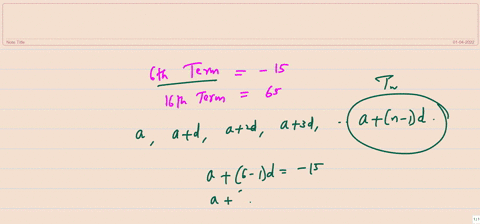 Note Title
6th Term = -15
16th Term = 65
Tn
a, a+d, a+2d, a+3d, .. a+(n-1)d.
a + (6-1)d = -15
a +